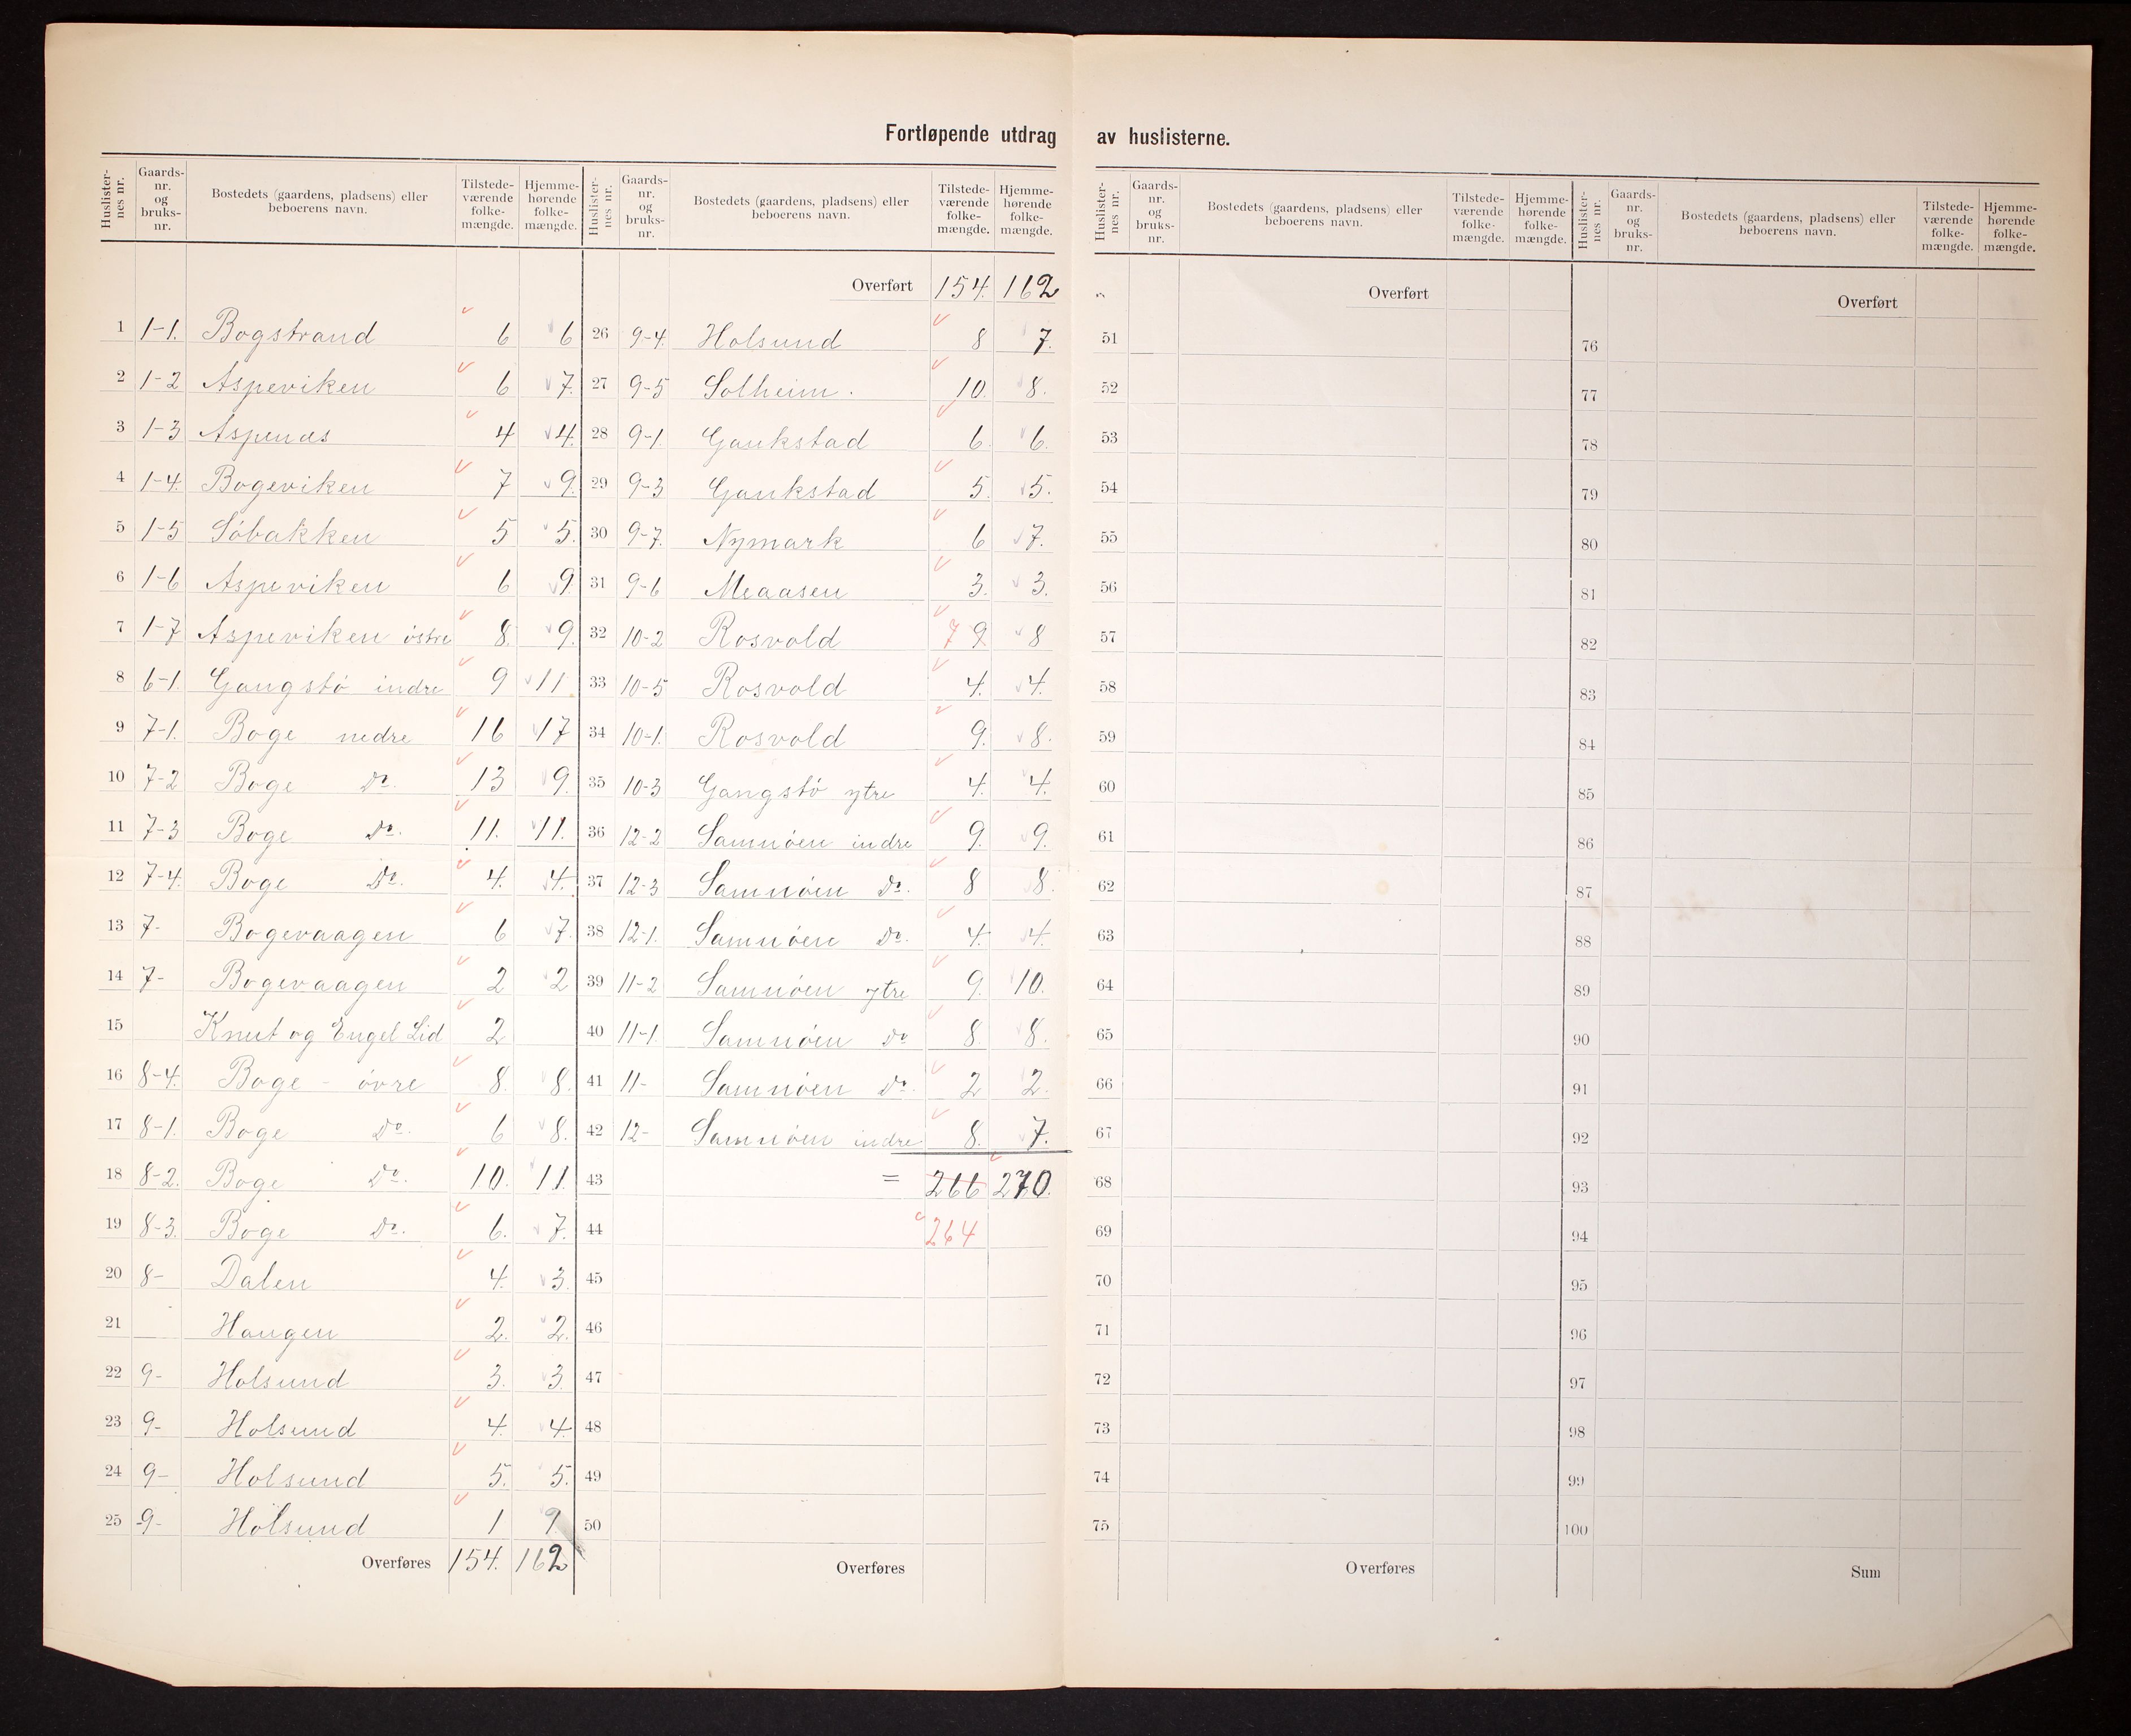 Fortløpende utdrag av huslisterne.
Huslisternes nr. Gaards-nr. og bruks-nr. Bostedets (gaardens, pladsens) eller beboerens navn. Tilstedeværende folkemængde. Hjemmehørende folkemængde.
1 1-1. Bogstrand 6 6
2 1-2 Aspeviken 6 7.
3 1-3 Aspenæs 4 4.
4 1-4. Bogeviken 7 9.
5 1-5 Söbakken 5 5.
6 1-6 Aspeviken 6 9.
7 1-7 Aspeviken östre 8. 9.
8 6-1. Gangstö indre 9 11
9 7-1. Boge nedre 16 17
10 7-2 Boge Do. 13 9.
11 7-3 Boge Do. 11. 11.
12 7-4. Boge Do. 4. 4.
13 7- Bogevaagen 6 7.
14 7- Bogevaagen 2 2
15 Knut og Engel Lid 2
16 8-4. Boge - övre 8. 8.
17 8-1. Boge Do. 6 8.
18 8-2. Boge Do. 10. 11.
19 8-3. Boge Do. 6. 7.
20 8- Dalen 4. 3.
21 Haugen 2. 2.
22 9- Holsund 3. 3.
23 9- Holsund 4. 4
24 9- Holsund 5. 5.
25 9- Holsund 1 9
Overføres 154. 162
Huslisternes nr. Gaards-nr. og bruks-nr. Bostedets (gaardens, pladsens) eller beboerens navn. Tilstedeværende folkemængde. Hjemmehørende folkemængde.
Overført 154. 162
26 9-4. Holsund 8 7.
27 9-5 Solheim. 10. 8.
28 9-1. Gaukstad 6. 6.
29 9-3 Gaukstad 5. 5.
30 9-7. Nymark 6 7.
31 9-6 Meaasen 3. 3.
32 10-2 Rosvold 7 9. 8
33 10-5 Rosvold 4. 4.
34 10-1. Rosvold 9. 8.
35 10-3 Gangstö ytre 4. 4.
36 12-2 Samnöen indre 9. 9.
37 12-3 Samnöen Do. 8 8.
38 12-1. Samnöen Do. 4. 4.
39 11-2 Samnöen ytre 9. 10.
40 11-1. Samnöen Do 8. 8.
41 11- Samnöen Do. 2 2.
42 12- Samnöen indre 8. 7.
43 = 266 270.
44 264
45
46
47
48
49
50
Overføres
Huslisternes nr. Gaards-nr. og bruks-nr. Bostedets (gaardens, pladsens) eller beboerens navn. Tilstedeværende folkemængde. Hjemmehørende folkemængde.
Overført
51
52
53
54
55
56
57
58
59
60
61
62
63
64
65
66
67
68
69
70
71
72
73
74
75
Overføres
Huslisternes nr. Gaards-nr. og bruks-nr. Bostedets (gaardens, pladsens) eller beboerens navn. Tilstedeværende folkemængde. Hjemmehørende folkemængde.
Overført
76
77
78
79
80
81
82
83
84
85
86
87
88
89
90
91
92
93
94
95
96
97
98
99
100
Sum